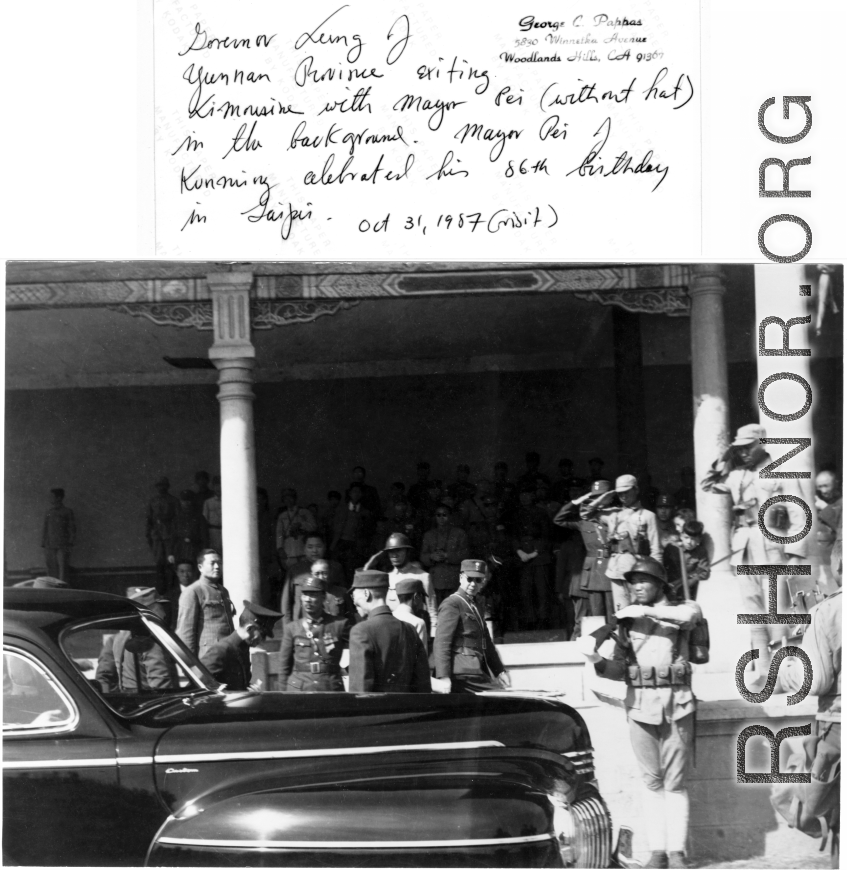 George C. Pappas
5890 Winnetka Avenue
Woodlands Hills, CA 91367
Governor Lung of
Yunnan Province exiting
Limousine with Mayor Pei (without hat)
in the background. Mayor Pei of
Kunming celebrated his 86th birthday
in Taipei.
Oct 31, 1987 (visit)
RSHONOR.ORG
Custom